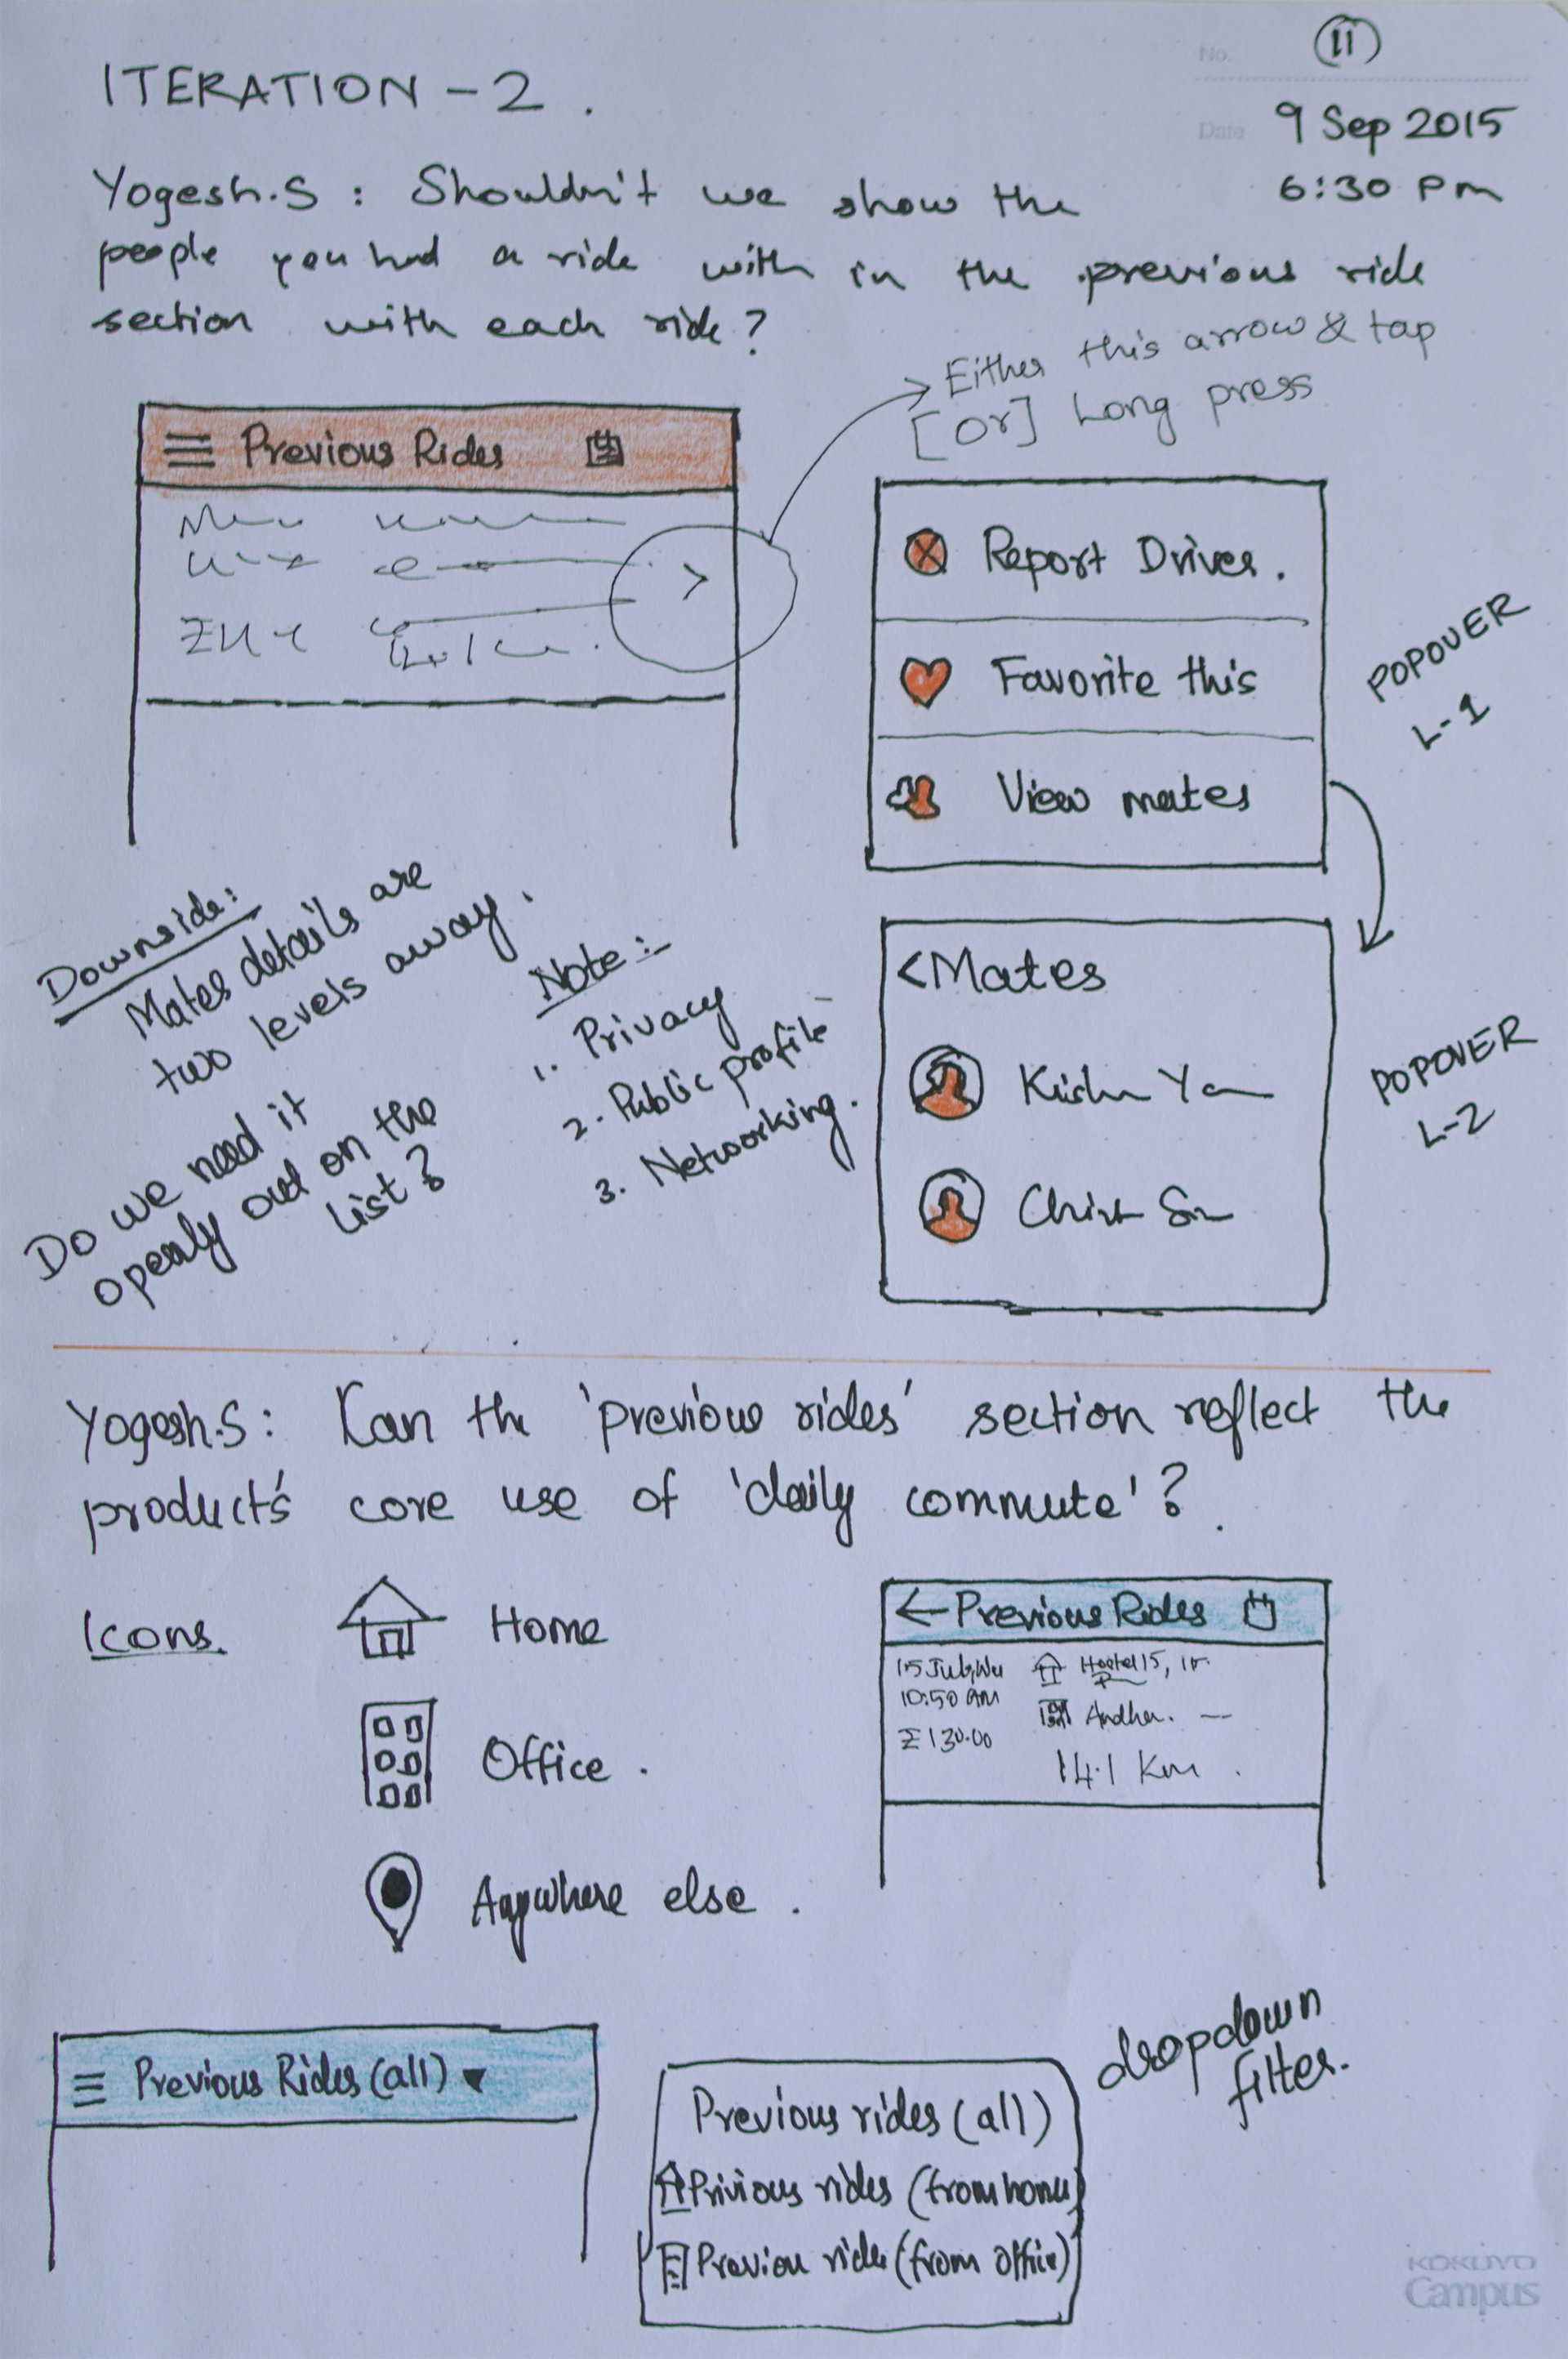 No.
11
ITERATION - 2 .
Date 9 Sep 2015
6:30 PM
Yogesh.S : Shouldn't we show the
people you had a ride with in the previous ride
section with each ride?
Either this arrow & tap
[Or] Long press
Previous Rides
>
Report Driver.
Favorite this
View mates
POPOVER
L-1
Downside:
Mates details are
two levels away.
Do we need it
openly out on the
list?
Note:-
1. Privacy
2. Public profile
3. Networking.
<Mates
POPOVER
L-2
Yogesh.S: Can the 'previous rides' section reflect the
product's core use of 'daily commute'?
Icons.
Home
Office .
Anywhere else .
Previous Rides
15 July,
10:50 AM
130.00
Hostel 15,
14.1 Km .
Previous Rides (all)
dropdown
filter.
Previous rides (all)
Privious rides (from home)
Previou rides (from office)
KOKUYO
Campus